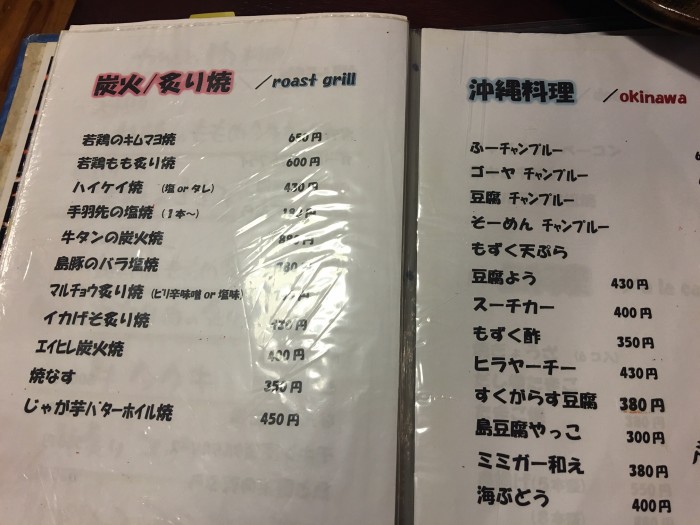 炭火/炙り焼 /roast grill
若鶏のキムマヨ焼 650円
若鶏もも炙り焼 600円
ハイケイ焼 (塩 or タレ) 430円
手羽先の塩焼 (1本~) 円
牛タンの炭火焼 880円
島豚のバラ塩焼 円
マルチョウ炙り焼 (ピリ辛味噌 or 塩味)
イカげそ炙り焼 円
エイヒレ炭火焼 400円
焼なす 350円
じゃが芋バターホイル焼 450円
沖縄料理 /okinawa
ふーチャンプルー
ゴーヤ チャンプルー
豆腐 チャンプルー
そーめん チャンプルー
もずく天ぷら
豆腐よう 430円
スーチカー 400円
もずく酢 350円
ヒラヤーチー 430円
すくがらす豆腐 380円
島豆腐やっこ 300円
ミミガー和え 380円
海ぶどう 400円